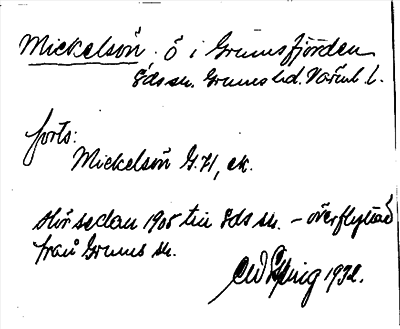 Mickelsön ö i Grumsfjorden
Eds sn. Grums hd. Värml. l.
forts:
Mickelsön G. 71, ek.
Hör sedan 1905 till Eds sn. - överflyttad
från Grums sn.
1932.